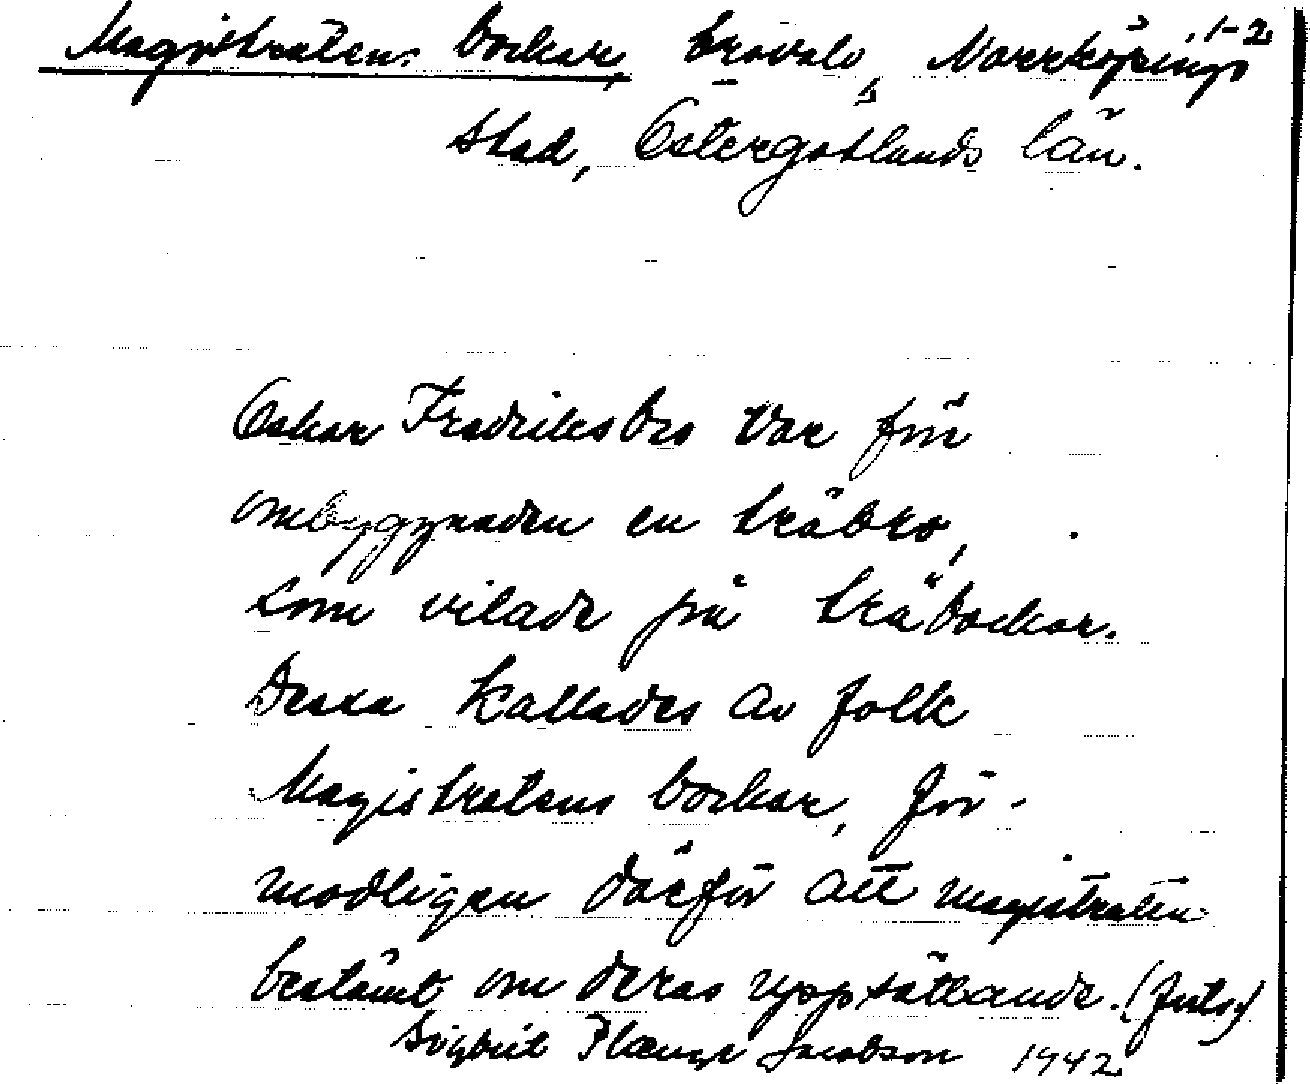 Magistratens bockar, brovalv, Norrköpings 1-2
stad, Östergötlands län.
Oskar Fredriksbro var för
ombyggnaden en träbro,
som vilade på träbockar.
Dessa kallades av folk
Magistratens bockar, för-
modligen därför att magistraten
bestämt om deras uppsättande. (forts.)
Sigbrit Plænge Jacobson 1942